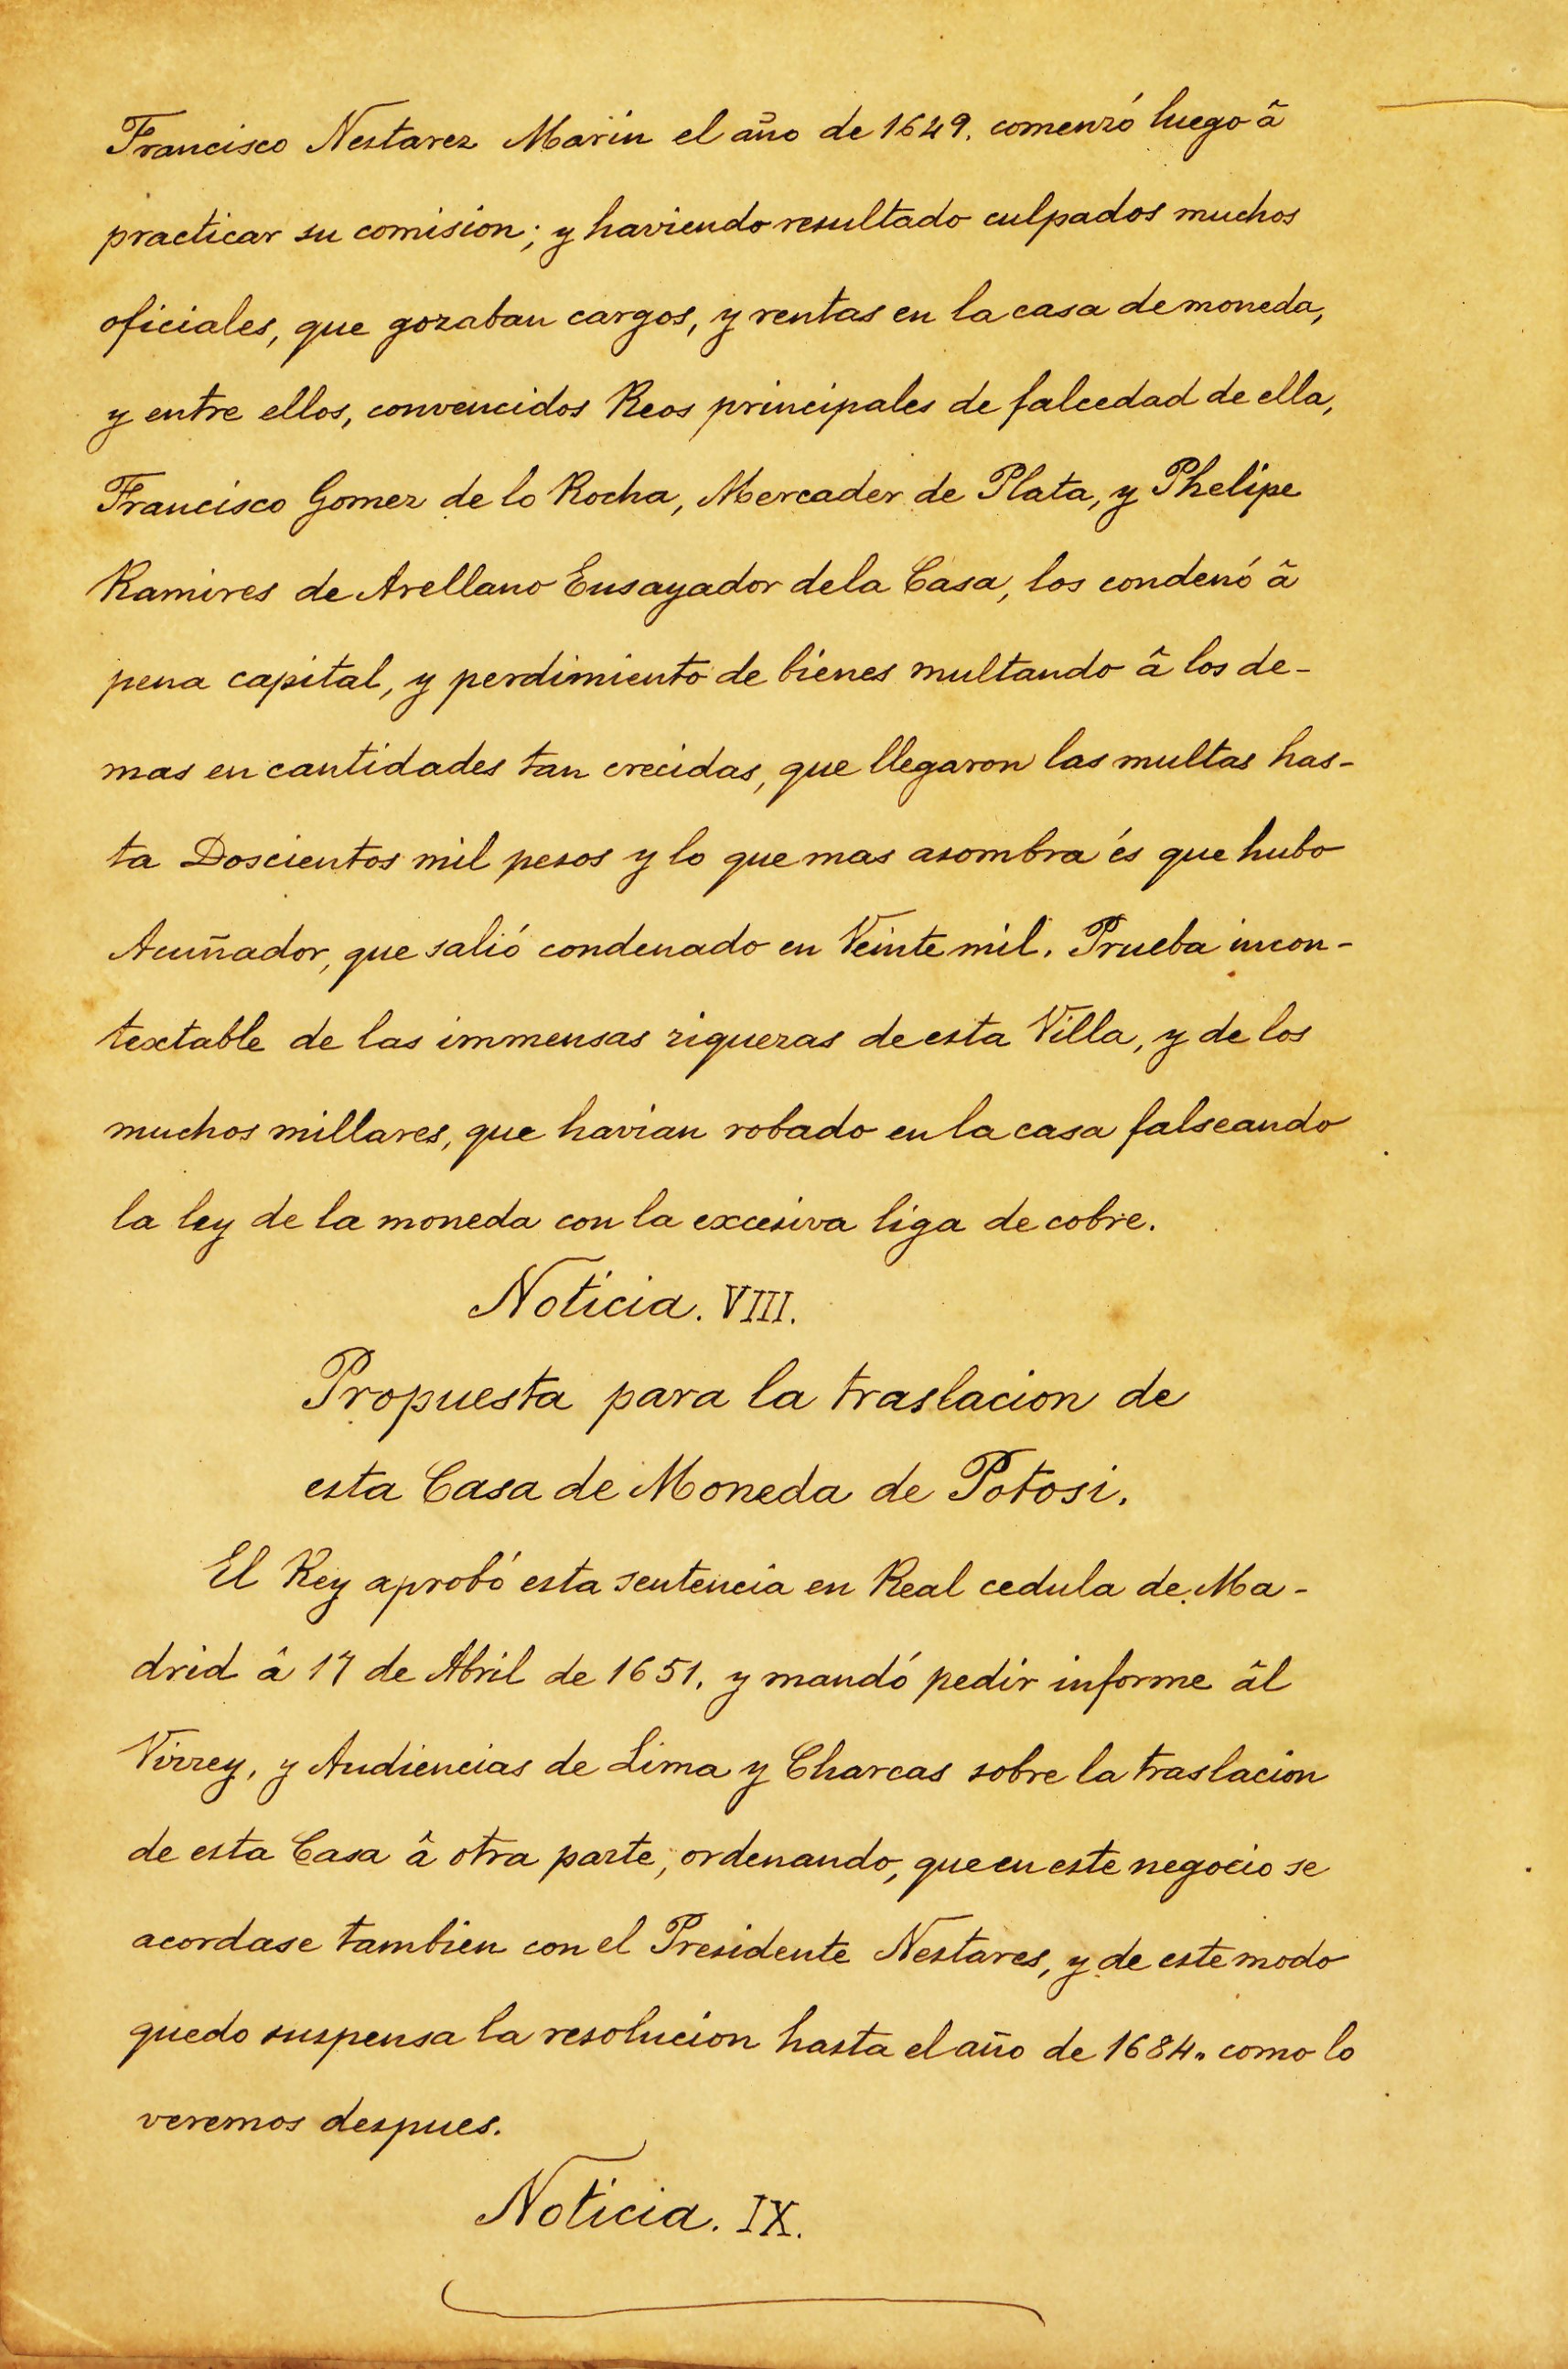 Francisco Nestarez Marin el año de 1649. comenzó luego â
practicar su comision; y haviendo resultado culpados muchos
oficiales, que gozaban cargos, y rentas en la casa de moneda,
y entre ellos, convencidos Reos principales de falcedad de ella,
Francisco Gomez de lo Rocha, Mercader de Plata, y Phelipe
Ramires de Arellano Ensayador dela Casa, los condenó â
pena capital, y perdimiento de bienes multando â los de-
mas en cantidades tan crecidas, que llegaron las multas has-
ta Doscientos mil pesos y lo que mas asombra és que hubo
Acuñador, que salió condenado en Veinte mil. Prueba incon-
textable de las immensas riquezas de esta Villa, y de los
muchos millares, que havian robado en la casa falseando
la ley de la moneda con la excesiva liga de cobre.
Noticia. VIII.
Propuesta para la traslacion de
esta Casa de Moneda de Potosi.
El Rey aprobó esta sentencia en Real cedula de Ma-
drid â 17 de Abril de 1651. y mandó pedir informe âl
Virrey, y Audiencias de Lima y Charcas sobre la traslacion
de esta Casa â otra parte, ordenando, que en este negocio se
acordase tambien con el Presidente Nestares, y de este modo
quedo suspensa la resolucion hasta el año de 1684. como lo
veremos despues.
Noticia. IX.